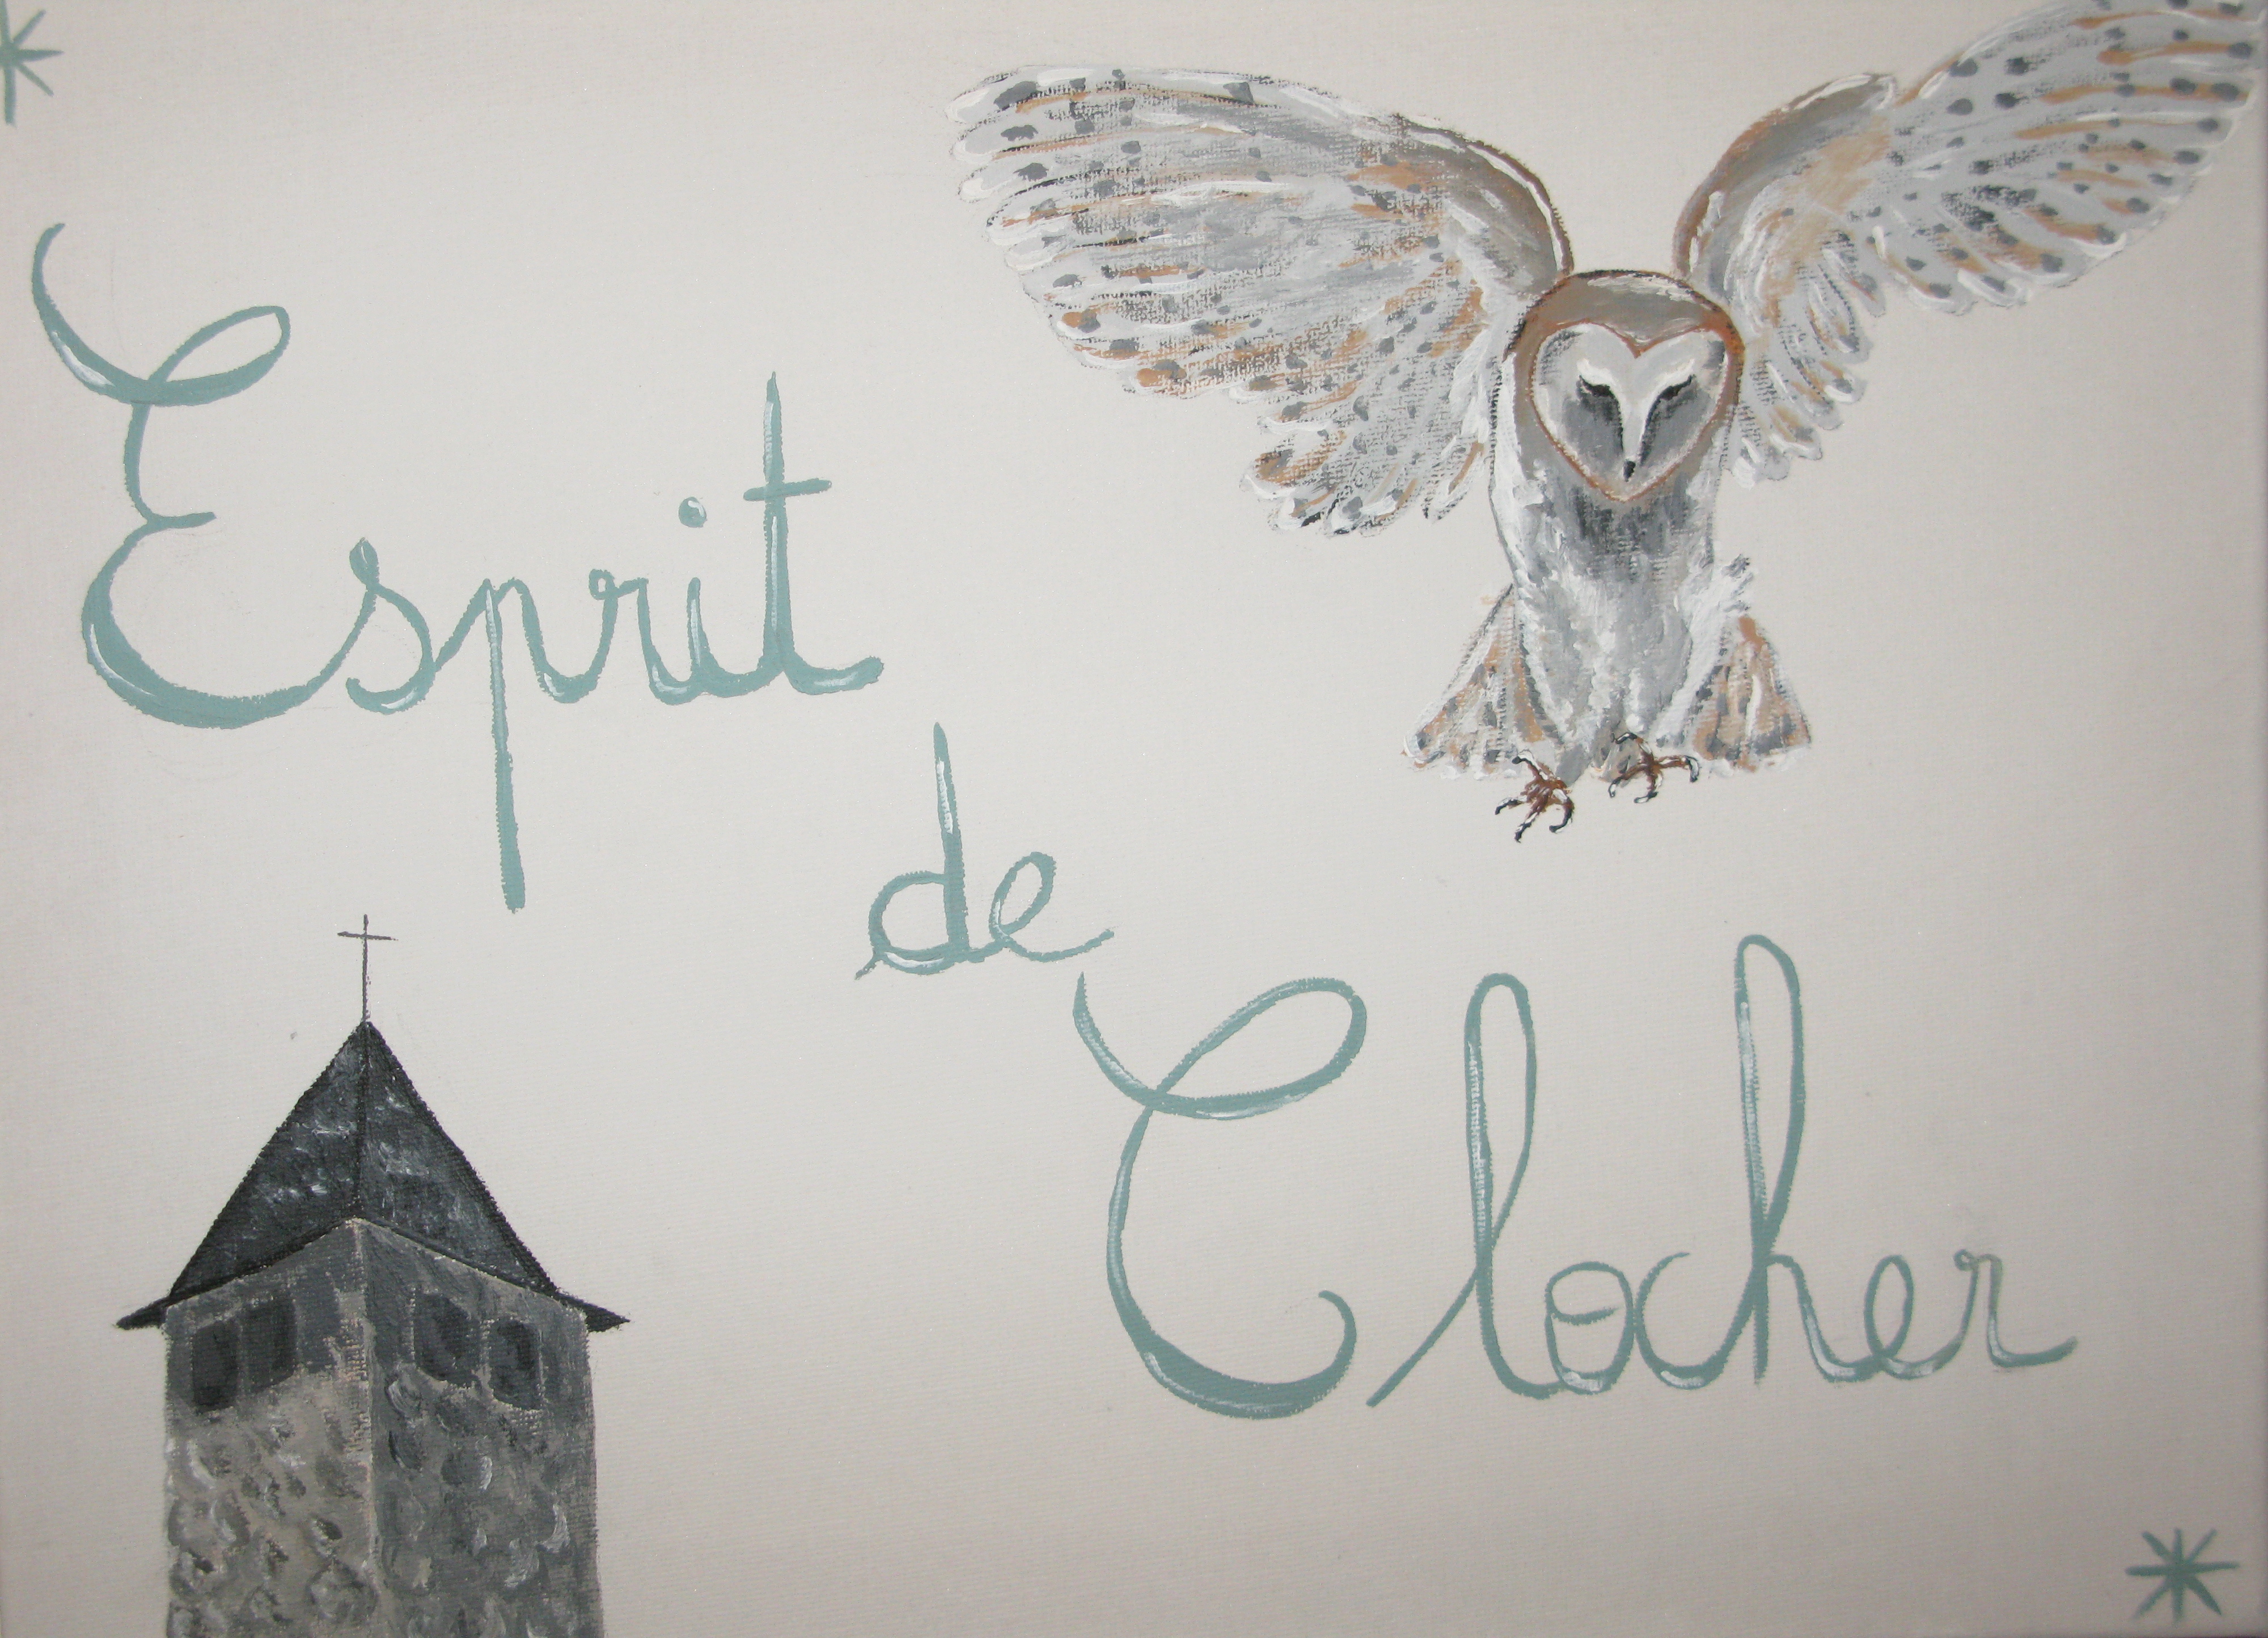 Esprit
de
Clocher